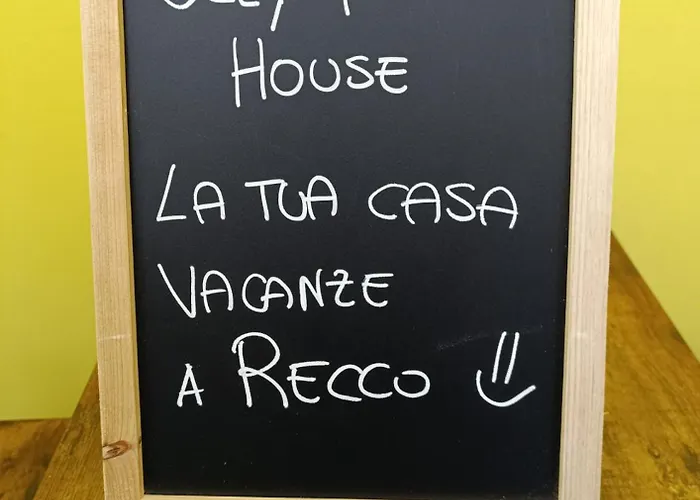 HOUSE
LA TUA CASA
VACANZE
A RECCO